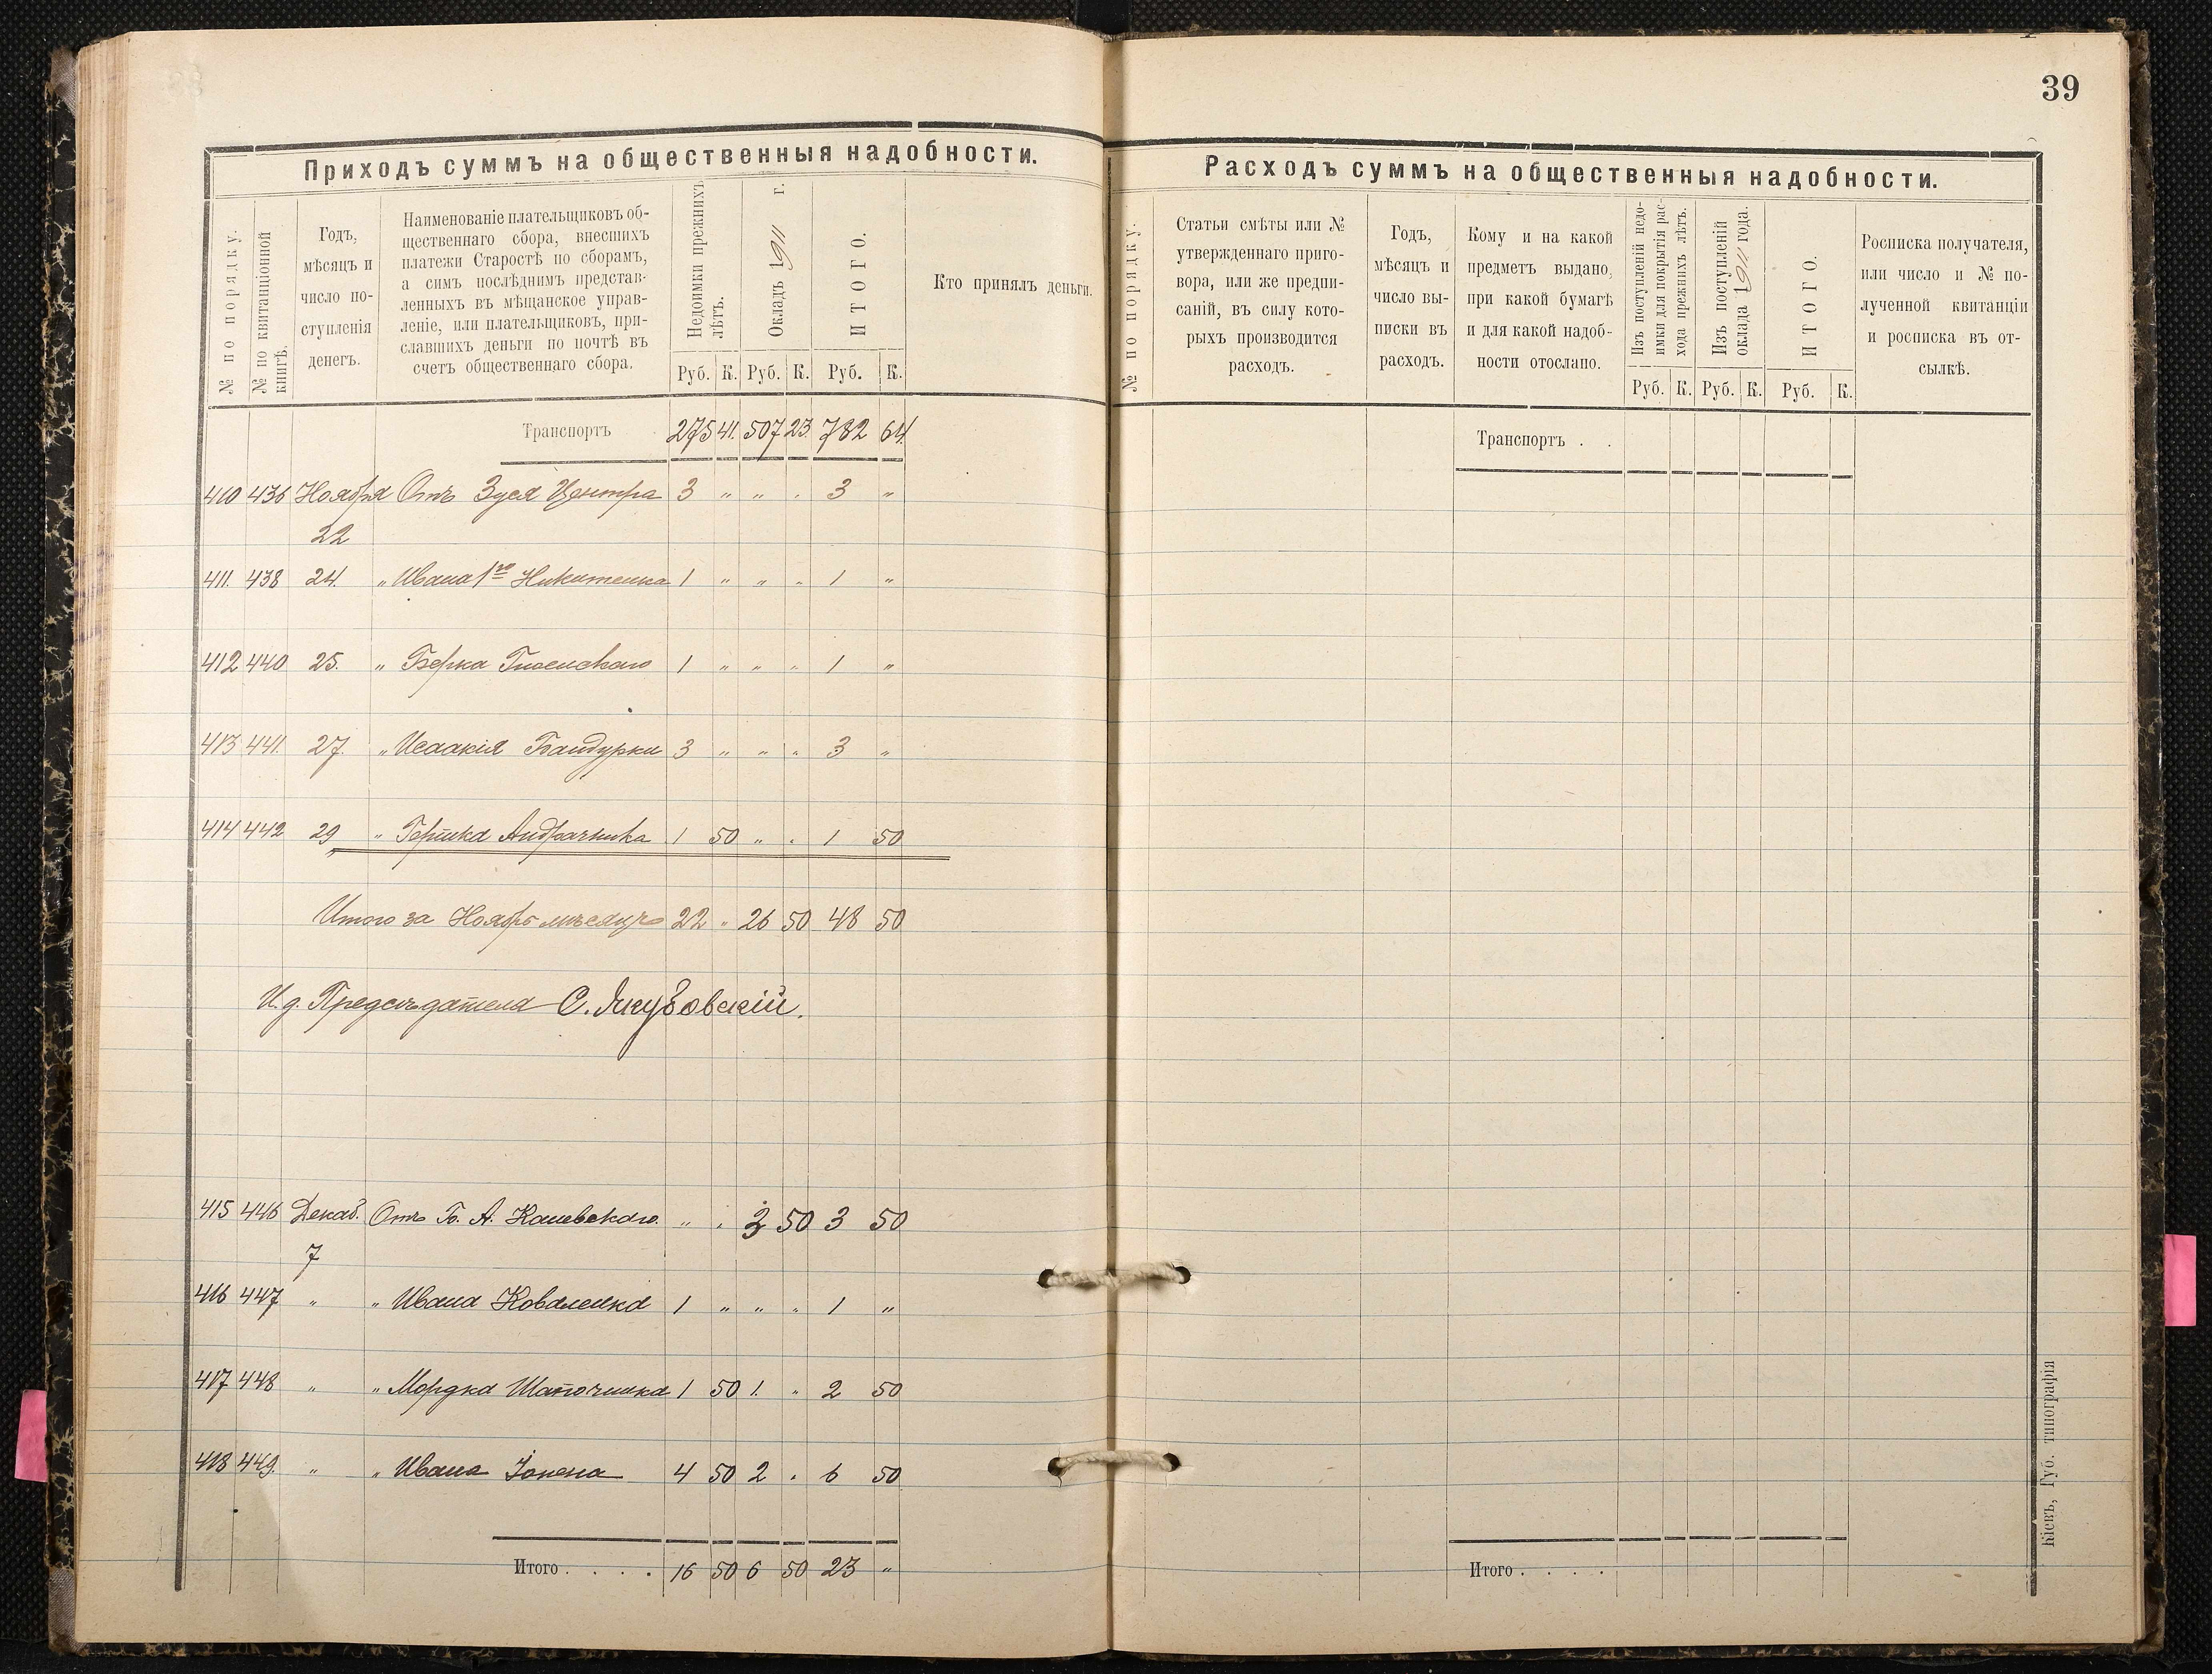 39
Приходъ суммъ на общественныя надобности.
№ по порядку.
№ по квитанціонной
книгѣ.
Годъ,
мѣсяцъ и
число по-
ступленія
денегъ.
Наименованіе плательщиковъ об-
щественнаго сбора, внесшихъ
платежи Старостѣ по сборамъ,
а симъ послѣднимъ представ-
ленныхъ въ мѣщанское управ-
леніе, или плательщиковъ, при-
славшихъ деньги по почтѣ въ
счетъ общественнаго сбора.
Недоимки прежнихъ
лѣтъ.
Окладъ 1911 г.
ИТОГО.
Кто принялъ деньги.
Руб. К. Руб. К. Руб. К.
Транспортъ 275 41. 507 23. 782 64.
410 436 Ноября Отъ Зуся Центра 3 " " " 3 "
22
411. 438 24. " Ивана 1го Никитенка 1 " " " 1 "
412 440 25. " Берка 1 " " " 1 "
413 441. 27. " Исаакія Бандурки 3 " " " 3 "
414 442 29 " Гершка 1 50 " " 1 50
Итого за Ноябрь мѣсяцъ 22 " 26 50 48 50
И. д. Предсѣдателя С. Якубовскій.
415 446 Декаб. Отъ Б. А. Каневскаго. " " 3 50 3 50
7
416 447 " " Ивана Коваленка 1 " " " 1 "
417 448 " " Мордка Шапочника 1 50 1. " 2 50
418 449. " " Ивана 4 50 2 " 6 50
Итого . . . . 16 50 6 50 23 "
Расходъ суммъ на общественныя надобности.
№ по порядку.
Статьи смѣты или №
утвержденнаго приго-
вора, или же предпи-
саній, въ силу кото-
рыхъ производится
расходъ.
Годъ,
мѣсяцъ и
число вы-
писки въ
расходъ.
Кому и на какой
предметъ выдано,
при какой бумагѣ
и для какой надоб-
ности отослано.
Изъ поступленій недо-
имки для покрытія рас-
хода прежнихъ лѣтъ.
Изъ поступленій
оклада 1911 года.
ИТОГО.
Росписка получателя,
или число и № по-
лученной квитанціи
и росписка въ от-
сылкѣ.
Руб. К. Руб. К. Руб. К.
Транспортъ . .
Итого . . . .
Кіевъ, Губ. типографія